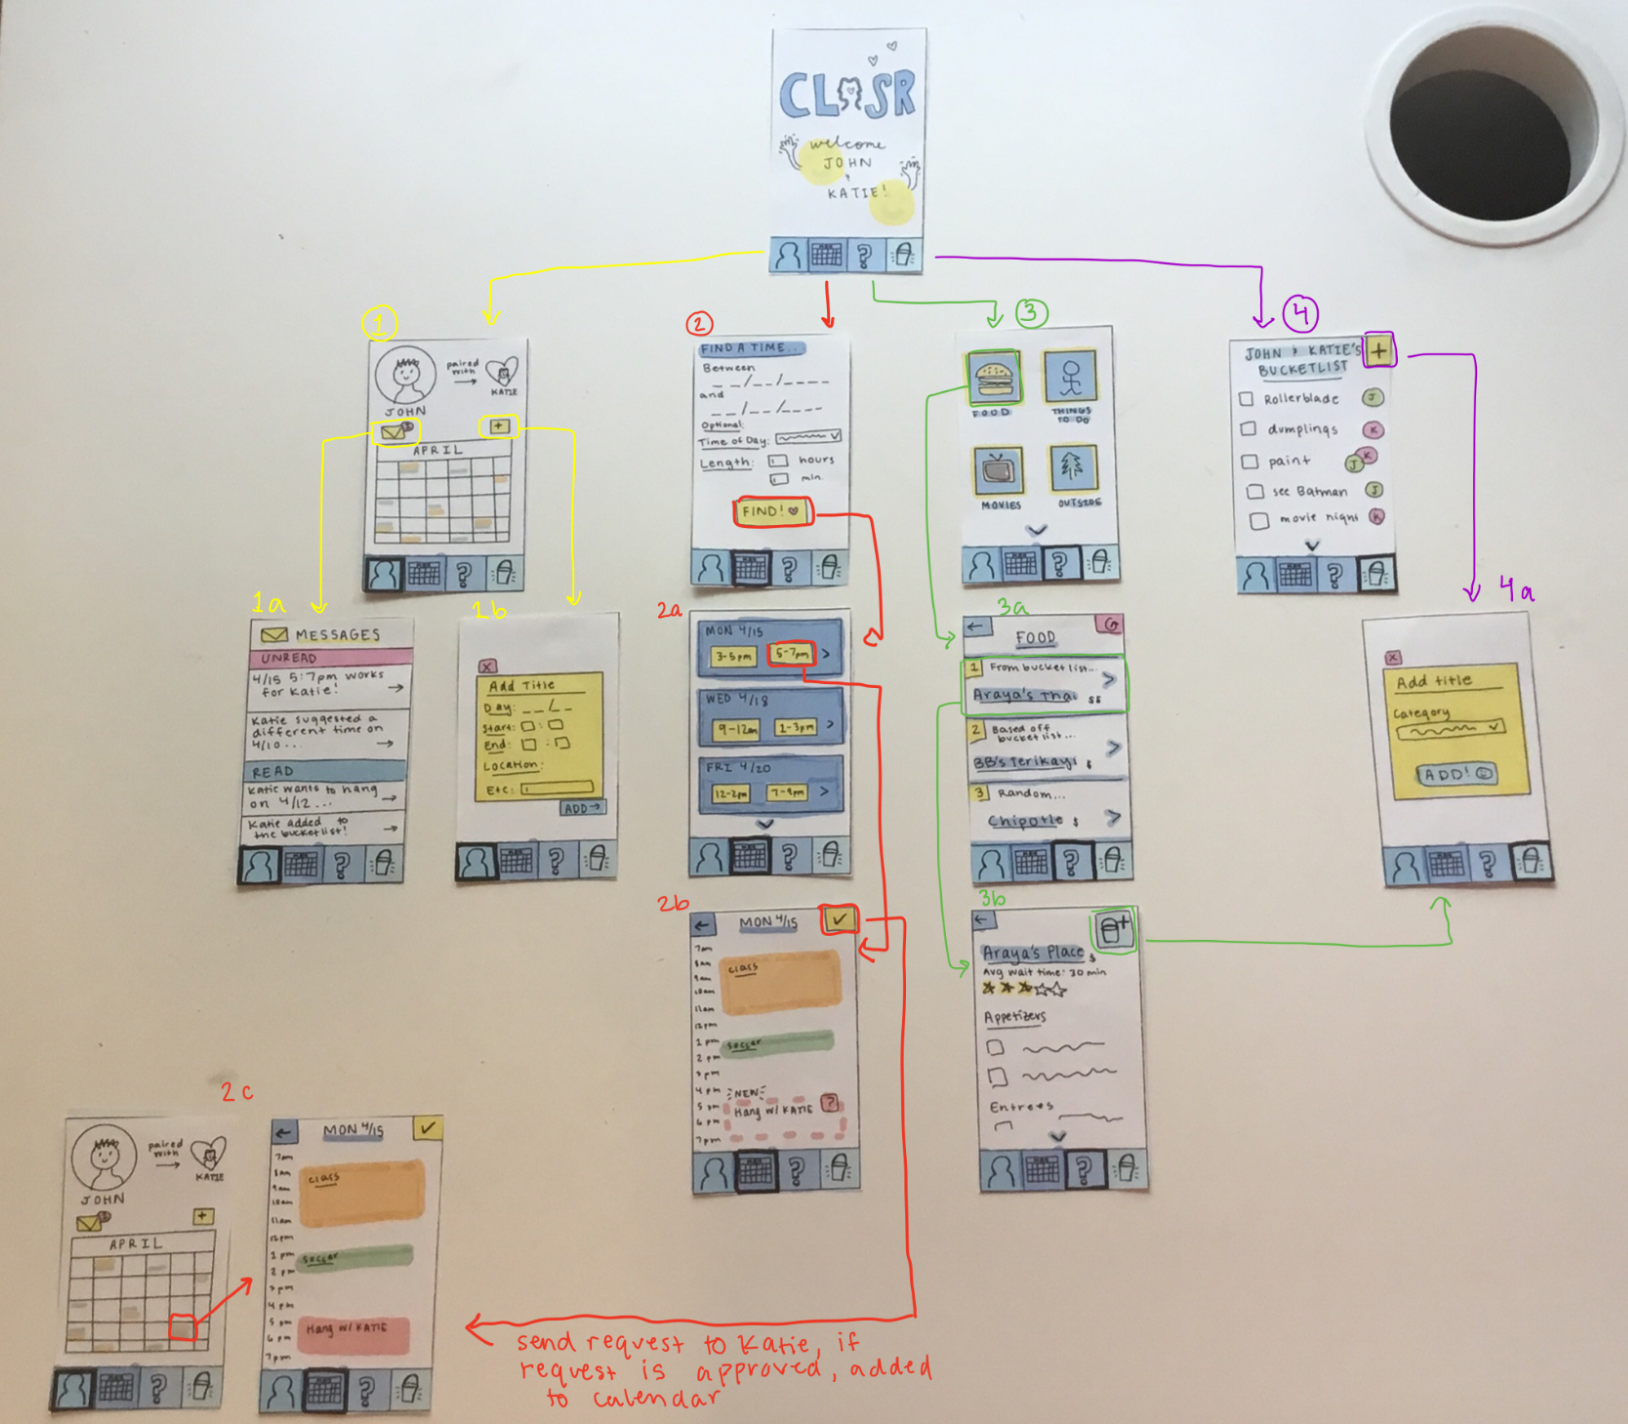 CLOSR
welcome
JOHN
&
KATIE!
1
JOHN
paired
with
KATIE
+
APRIL
?
2
FIND A TIME...
Between
__/__/____
and
__/__/____
Optional:
Time of Day:
Length:
hours
min.
FIND!
?
3
FOOD
THINGS
TO DO
MOVIES
OUTSIDE
?
4
JOHN & KATIE'S
BUCKETLIST
+
Rollerblade J
dumplings K
paint J K
see Batman J
movie night K
?
1a
MESSAGES
UNREAD
4/15 5-7pm works
for Katie!
Katie suggested a
different time on
4/10...
READ
Katie wants to hang
on 4/12...
Katie added to
the bucketlist!
?
1b
X
Add Title
Day: __/__
Start: :
End: :
Location:
Etc:
ADD→
?
2a
MON 4/15
3-5pm 5-7pm >
WED 4/18
9-12am 1-3pm >
FRI 4/20
12-2pm 7-9pm >
?
3a
←
FOOD
1 From bucket list...
Araya's Thai $$ >
2 Based off
bucket list...
BB's Terikayi $ >
3 Random...
Chipotle $ >
?
4a
X
Add title
Category
ADD!
?
2b
← MON 4/15 ✓
7am
8am
9am
10am
11am
12pm
1pm
2pm
3pm
4pm
5pm
6pm
7pm
class
soccer
NEW
Hang w/ KATIE ?
?
3b
←
+
Araya's Place $
Avg wait time: 30 min
Appetizers
Entrees
?
2c
JOHN
paired
with
KATIE
+
APRIL
?
← MON 4/15 ✓
7am
8am
9am
10am
11am
12pm
1pm
2pm
3pm
4pm
5pm
6pm
7pm
class
soccer
Hang w/ KATIE
?
send request to Katie, if
request is approved, added
to calendar